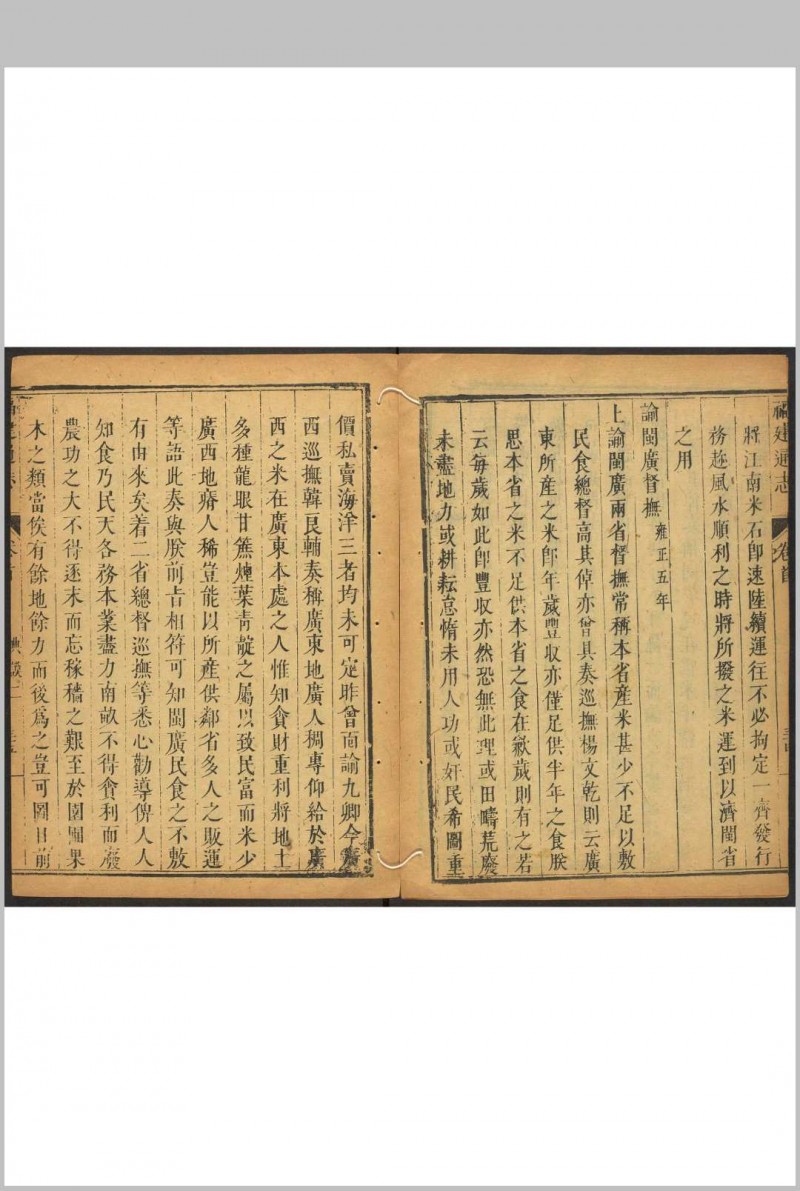 福建通志
卷首
將江南米石卽速陸續運往不必拘定一齊發行
務趂風水順利之時將所撥之米運到以濟閩省
之用
諭閩廣督撫雍正五年
上諭閩廣兩省督撫常稱本省產米甚少不足以敷
民食總督高其倬亦曾具奏巡撫楊文乾則云廣
東所產之米卽年歲豐收亦僅足供半年之食朕
思本省之米不足供本省之食在歉歲則有之若
云每歲如此卽豐收亦然恐無此理或田疇荒廢
未盡地力或耕耘怠惰未用人功或奸民希圖重
價私賣海洋三者均未可定昨曾面諭九卿今廣
西巡撫韓良輔奏稱廣東地廣人稠專仰給於廣
西之米在廣東本處之人惟知貪財重利將地土
多種龍眼甘蔗煙葉青靛之屬以致民富而米少
廣西地瘠人稀豈能以所產供鄰省多人之販運
等語此奏與朕前旨相符可知閩廣民食之不敷
有由來矣着二省總督巡撫等悉心勸導俾人人
知食乃民天各務本業盡力南畝不得貪利而廢
農功之大不得逐末而忘稼穡之艱至於園圃果
木之類當俟有餘地餘力而後爲之豈可圖目前
卷首
典謨二